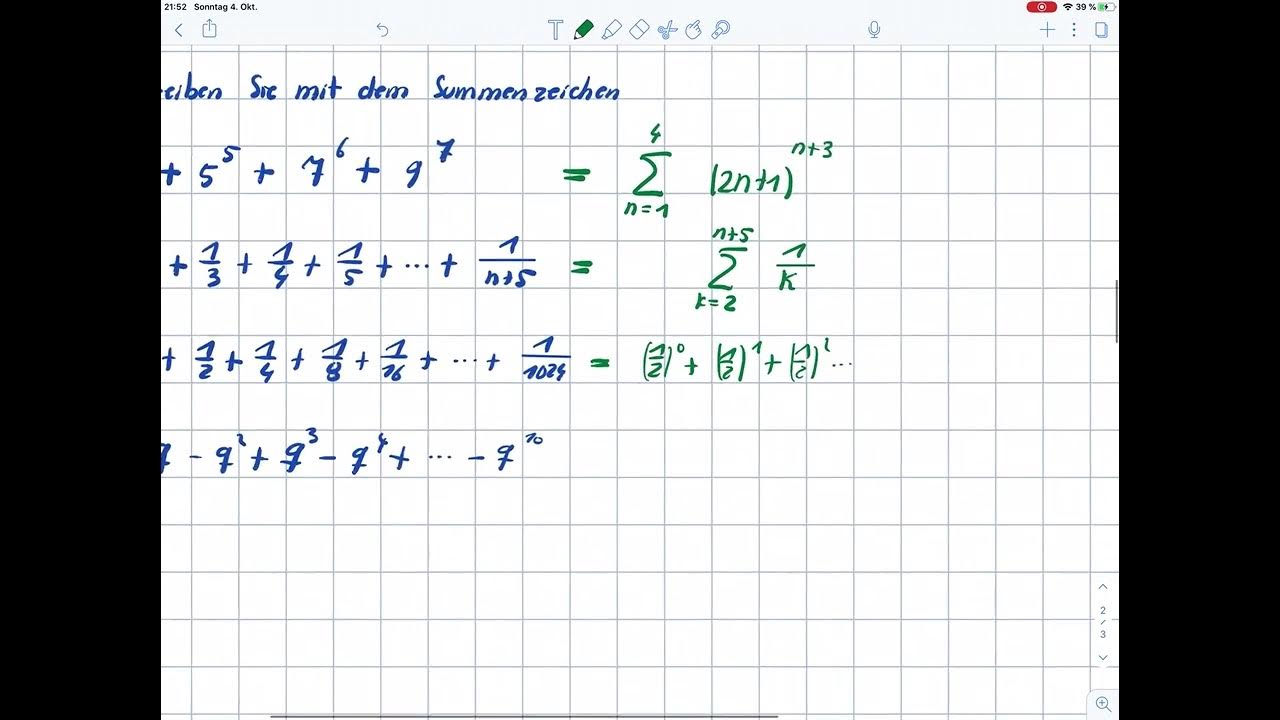 21:52 Sonntag 4. Okt. 39 %
eiben Sie mit dem Summenzeichen
+ 5^5 + 7^6 + 9^7 = ∑_{n=1}^{4} (2n+1)^{n+3}
+ 1/3 + 1/4 + 1/5 + ... + 1/(n+5) = ∑_{k=2}^{n+5} 1/k
+ 1/2 + 1/4 + 1/8 + 1/16 + ... + 1/1024 = (1/2)^0 + (1/2)^1 + (1/2)^2 ...
q - q^2 + q^3 - q^4 + ... - q^10
2
/
3